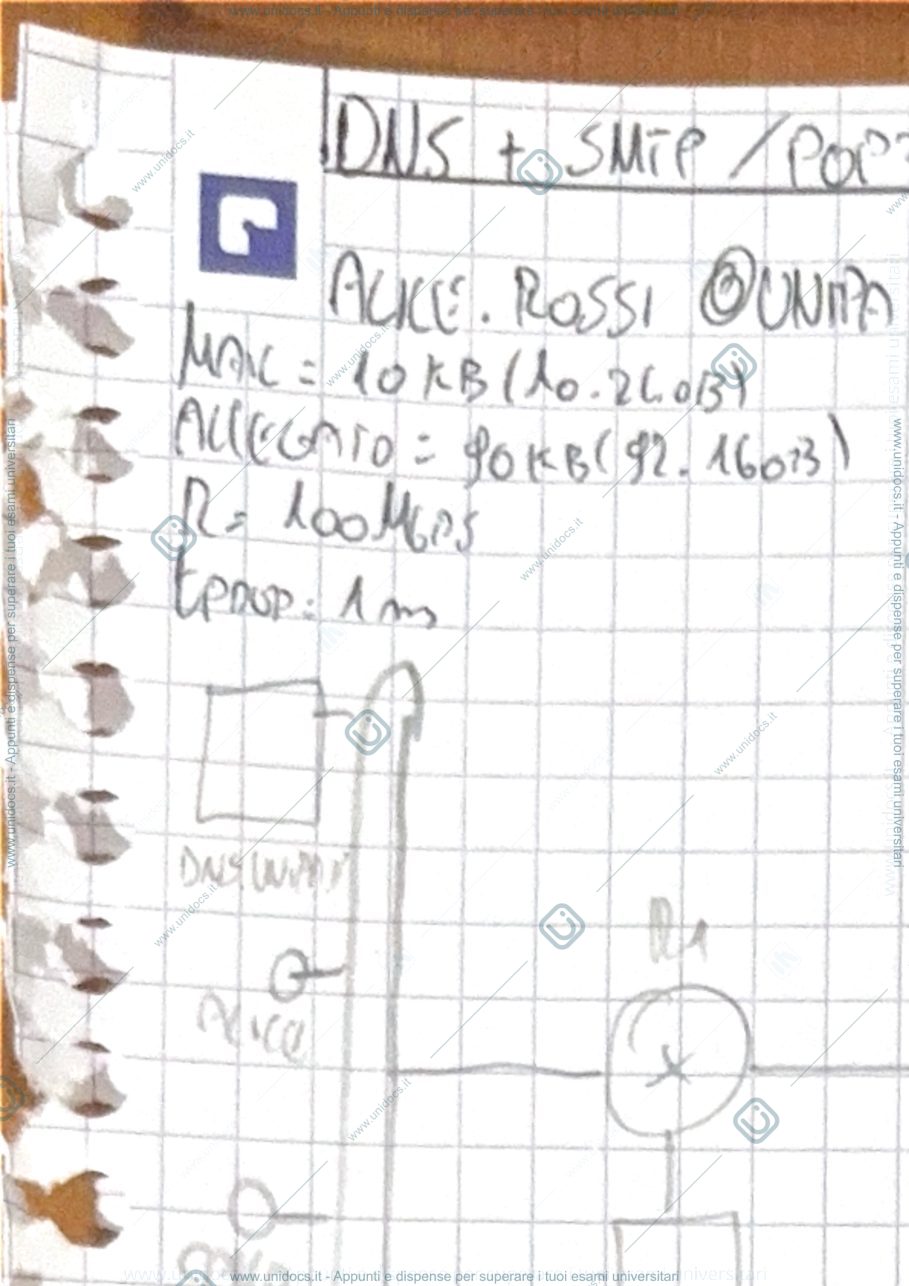 www.unidocs.it - Appunti e dispense per superare i tuoi esami universitari
DNS + SMTP / POP3
ALICE.ROSSI @UNIPA
MAIL = 10 KB (10.240B)
ALLEGATO = 90 KB (92.160B)
R = 100 Mbps
tprop = 1 ms
DNS UNIPA
ALICE
R1
www.unidocs.it - Appunti e dispense per superare i tuoi esami universitari
www.unidocs.it - Appunti e dispense per superare i tuoi esami universitari
www.unidocs.it - Appunti e dispense per superare i tuoi esami universitari
www.unidocs.it
www.unidocs.it
www.unidocs.it
www.unidocs.it
www.unidocs.it
www.unidocs.it